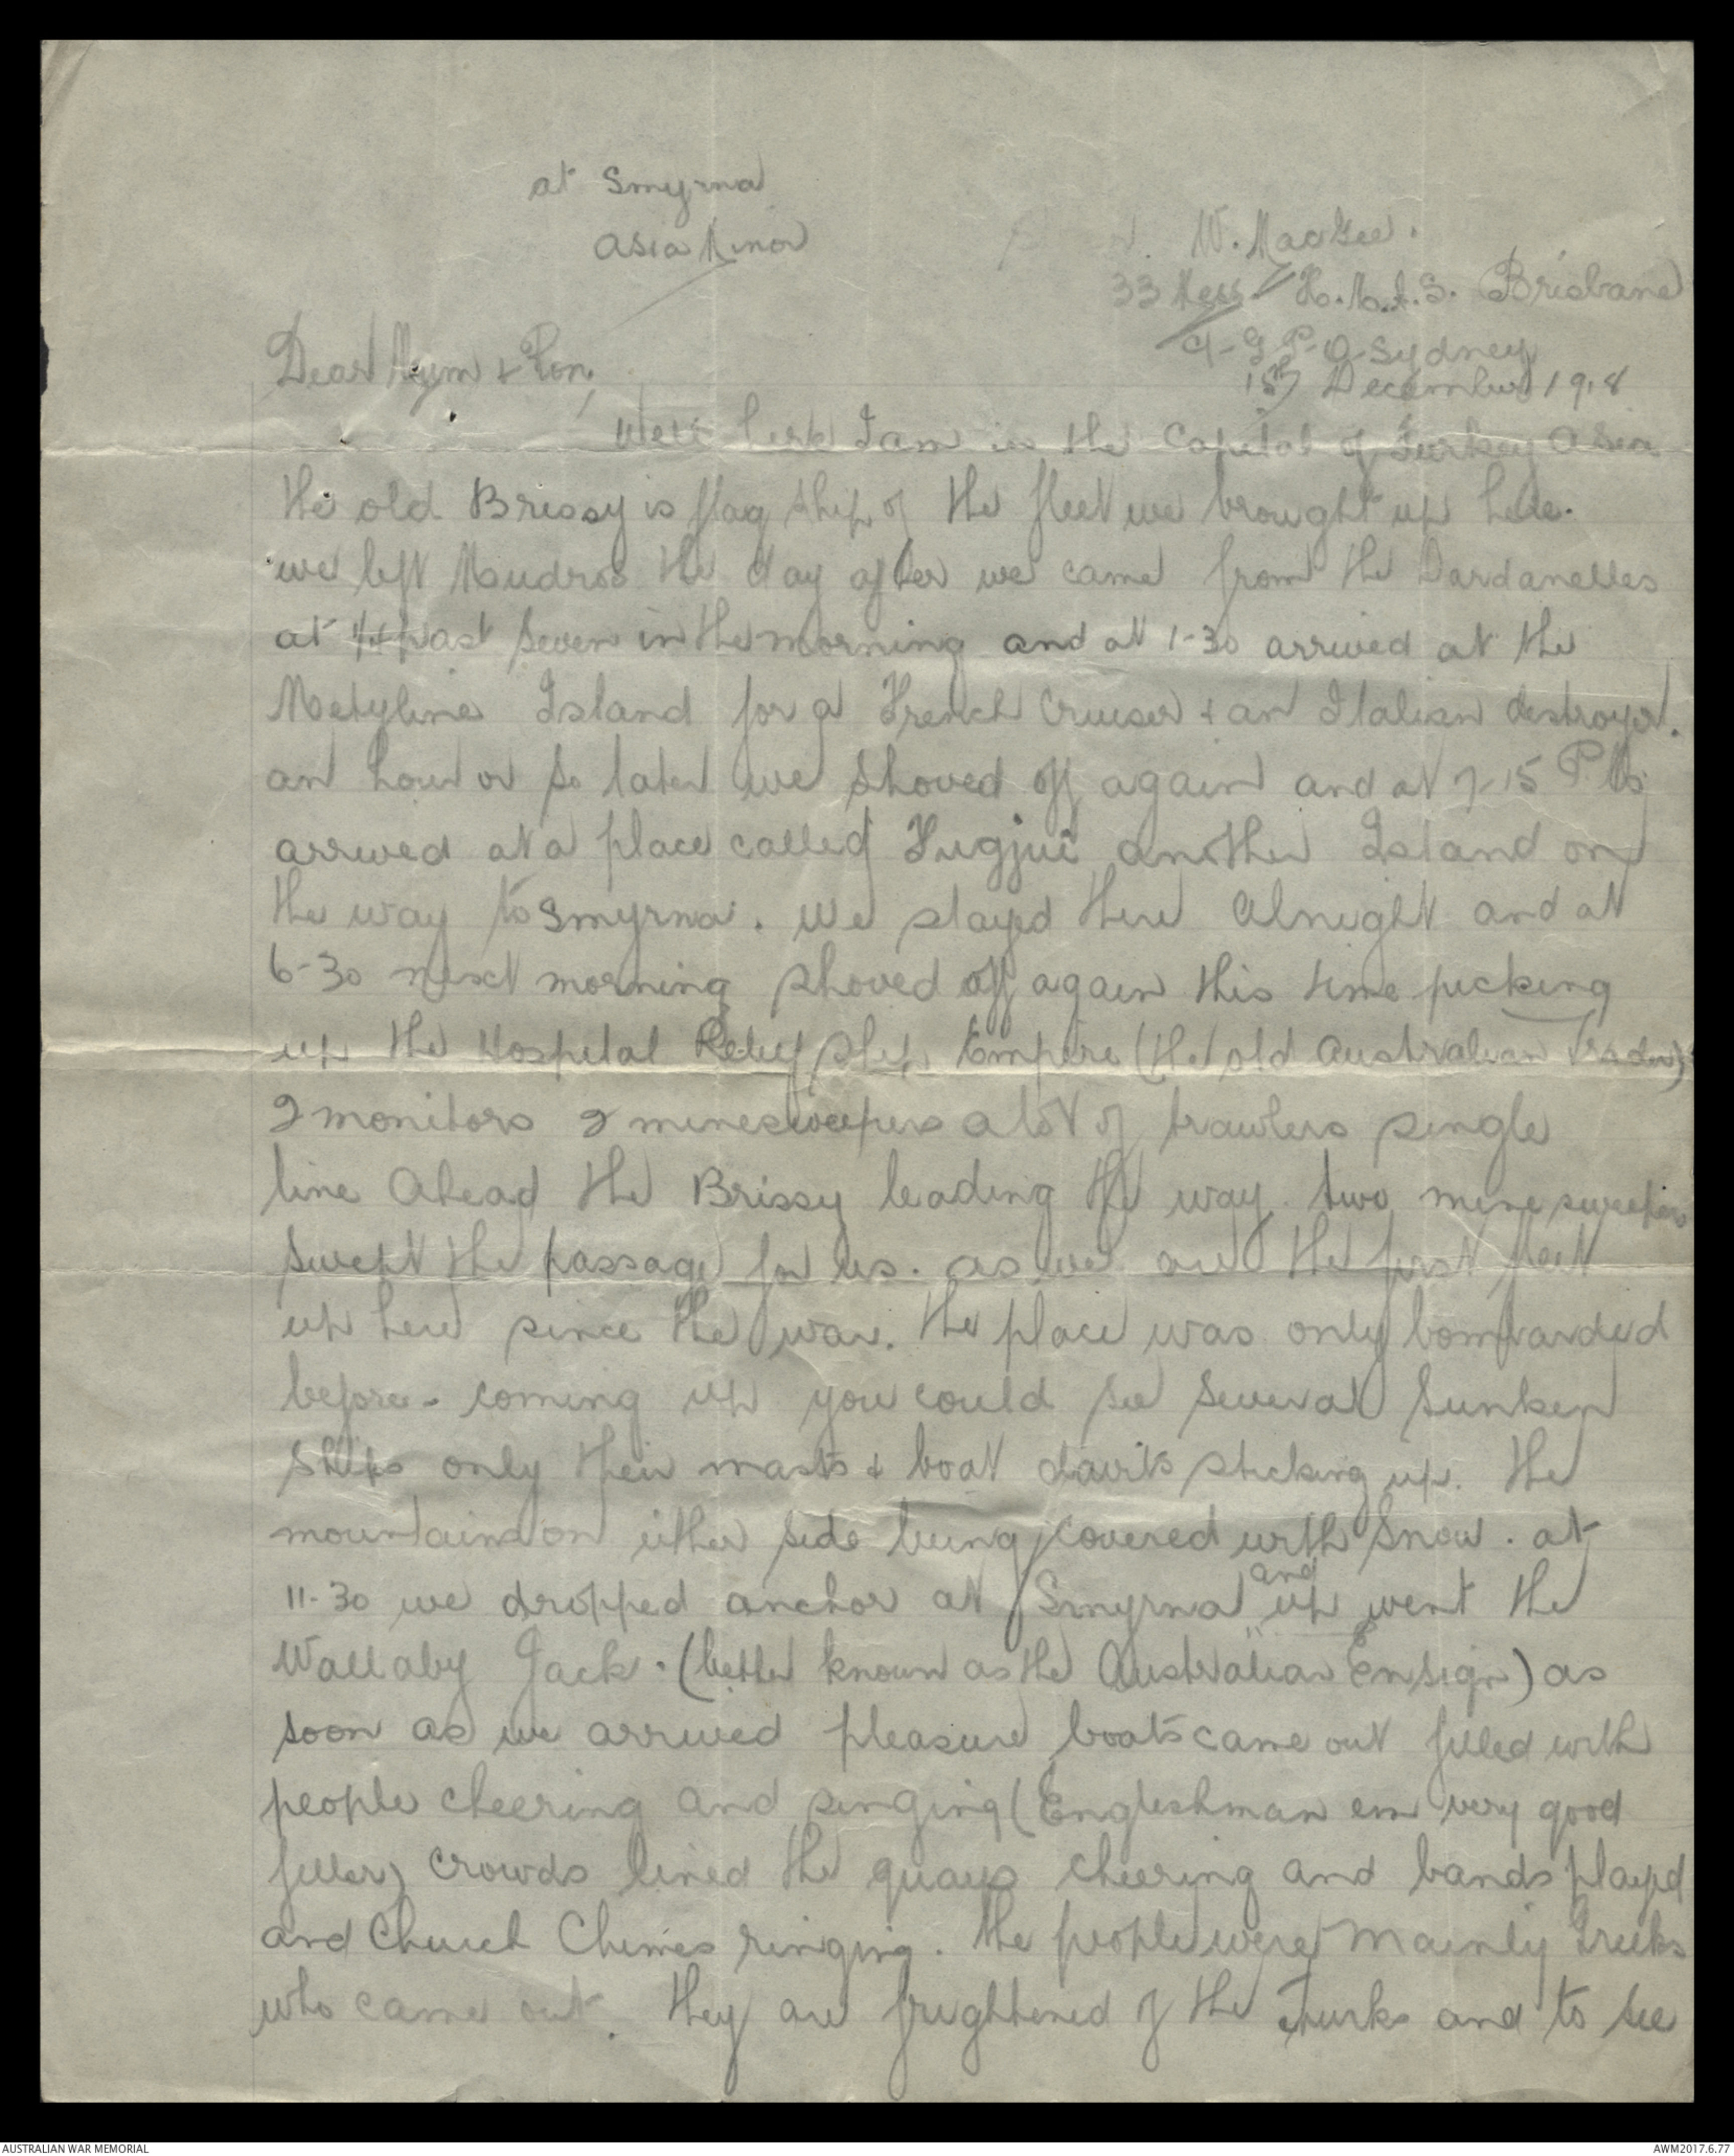 at Smyrna
Asia Minor
W. MacGee.
33 Mess H.M.A.S. Brisbane
C/- G.P.O. Sydney
15th December 1918
Dear Mym & Ron,
Well here I am in the Capital of Turkey Asia
the old Brissy is flag ship of the fleet we brought up here.
we left Mudros the day after we came from the Dardanelles
at 1/4 past seven in the morning and at 1-30 arrived at the
Metyline Island for a French Cruiser & an Italian destroyer.
an hour or so later we shoved off again and at 7-15 P.M.
arrived at a place called another Island on
the way to Smyrna. we stayed there alnight and at
6-30 next morning shoved off again this time picking
up the Hospital Relief ship Empire (the old Australian Trader)
2 monitors 2 minesweepers a lot of trawlers single
line Ahead the Brissy leading the way. two mine sweepers
swept the passage for us. as we are the first fleet
up here since the war. the place was only bombarded
before. coming up you could see several sunken
ships only their masts & boat davits sticking up. the
mountains on either side being covered with snow. at
11-30 we dropped anchor at Smyrna and up went the
Wallaby Jack. (better known as the Australian Ensign) as
soon as we arrived pleasure boats came out filled with
people cheering and singing (Englishman em very good
feller) crowds lined the quays cheering and bands played
and Church Chimes ringing. the people were mainly Greeks
who came out. they are frightened of the Turks and to see
AUSTRALIAN WAR MEMORIAL
AWM2017.6.77